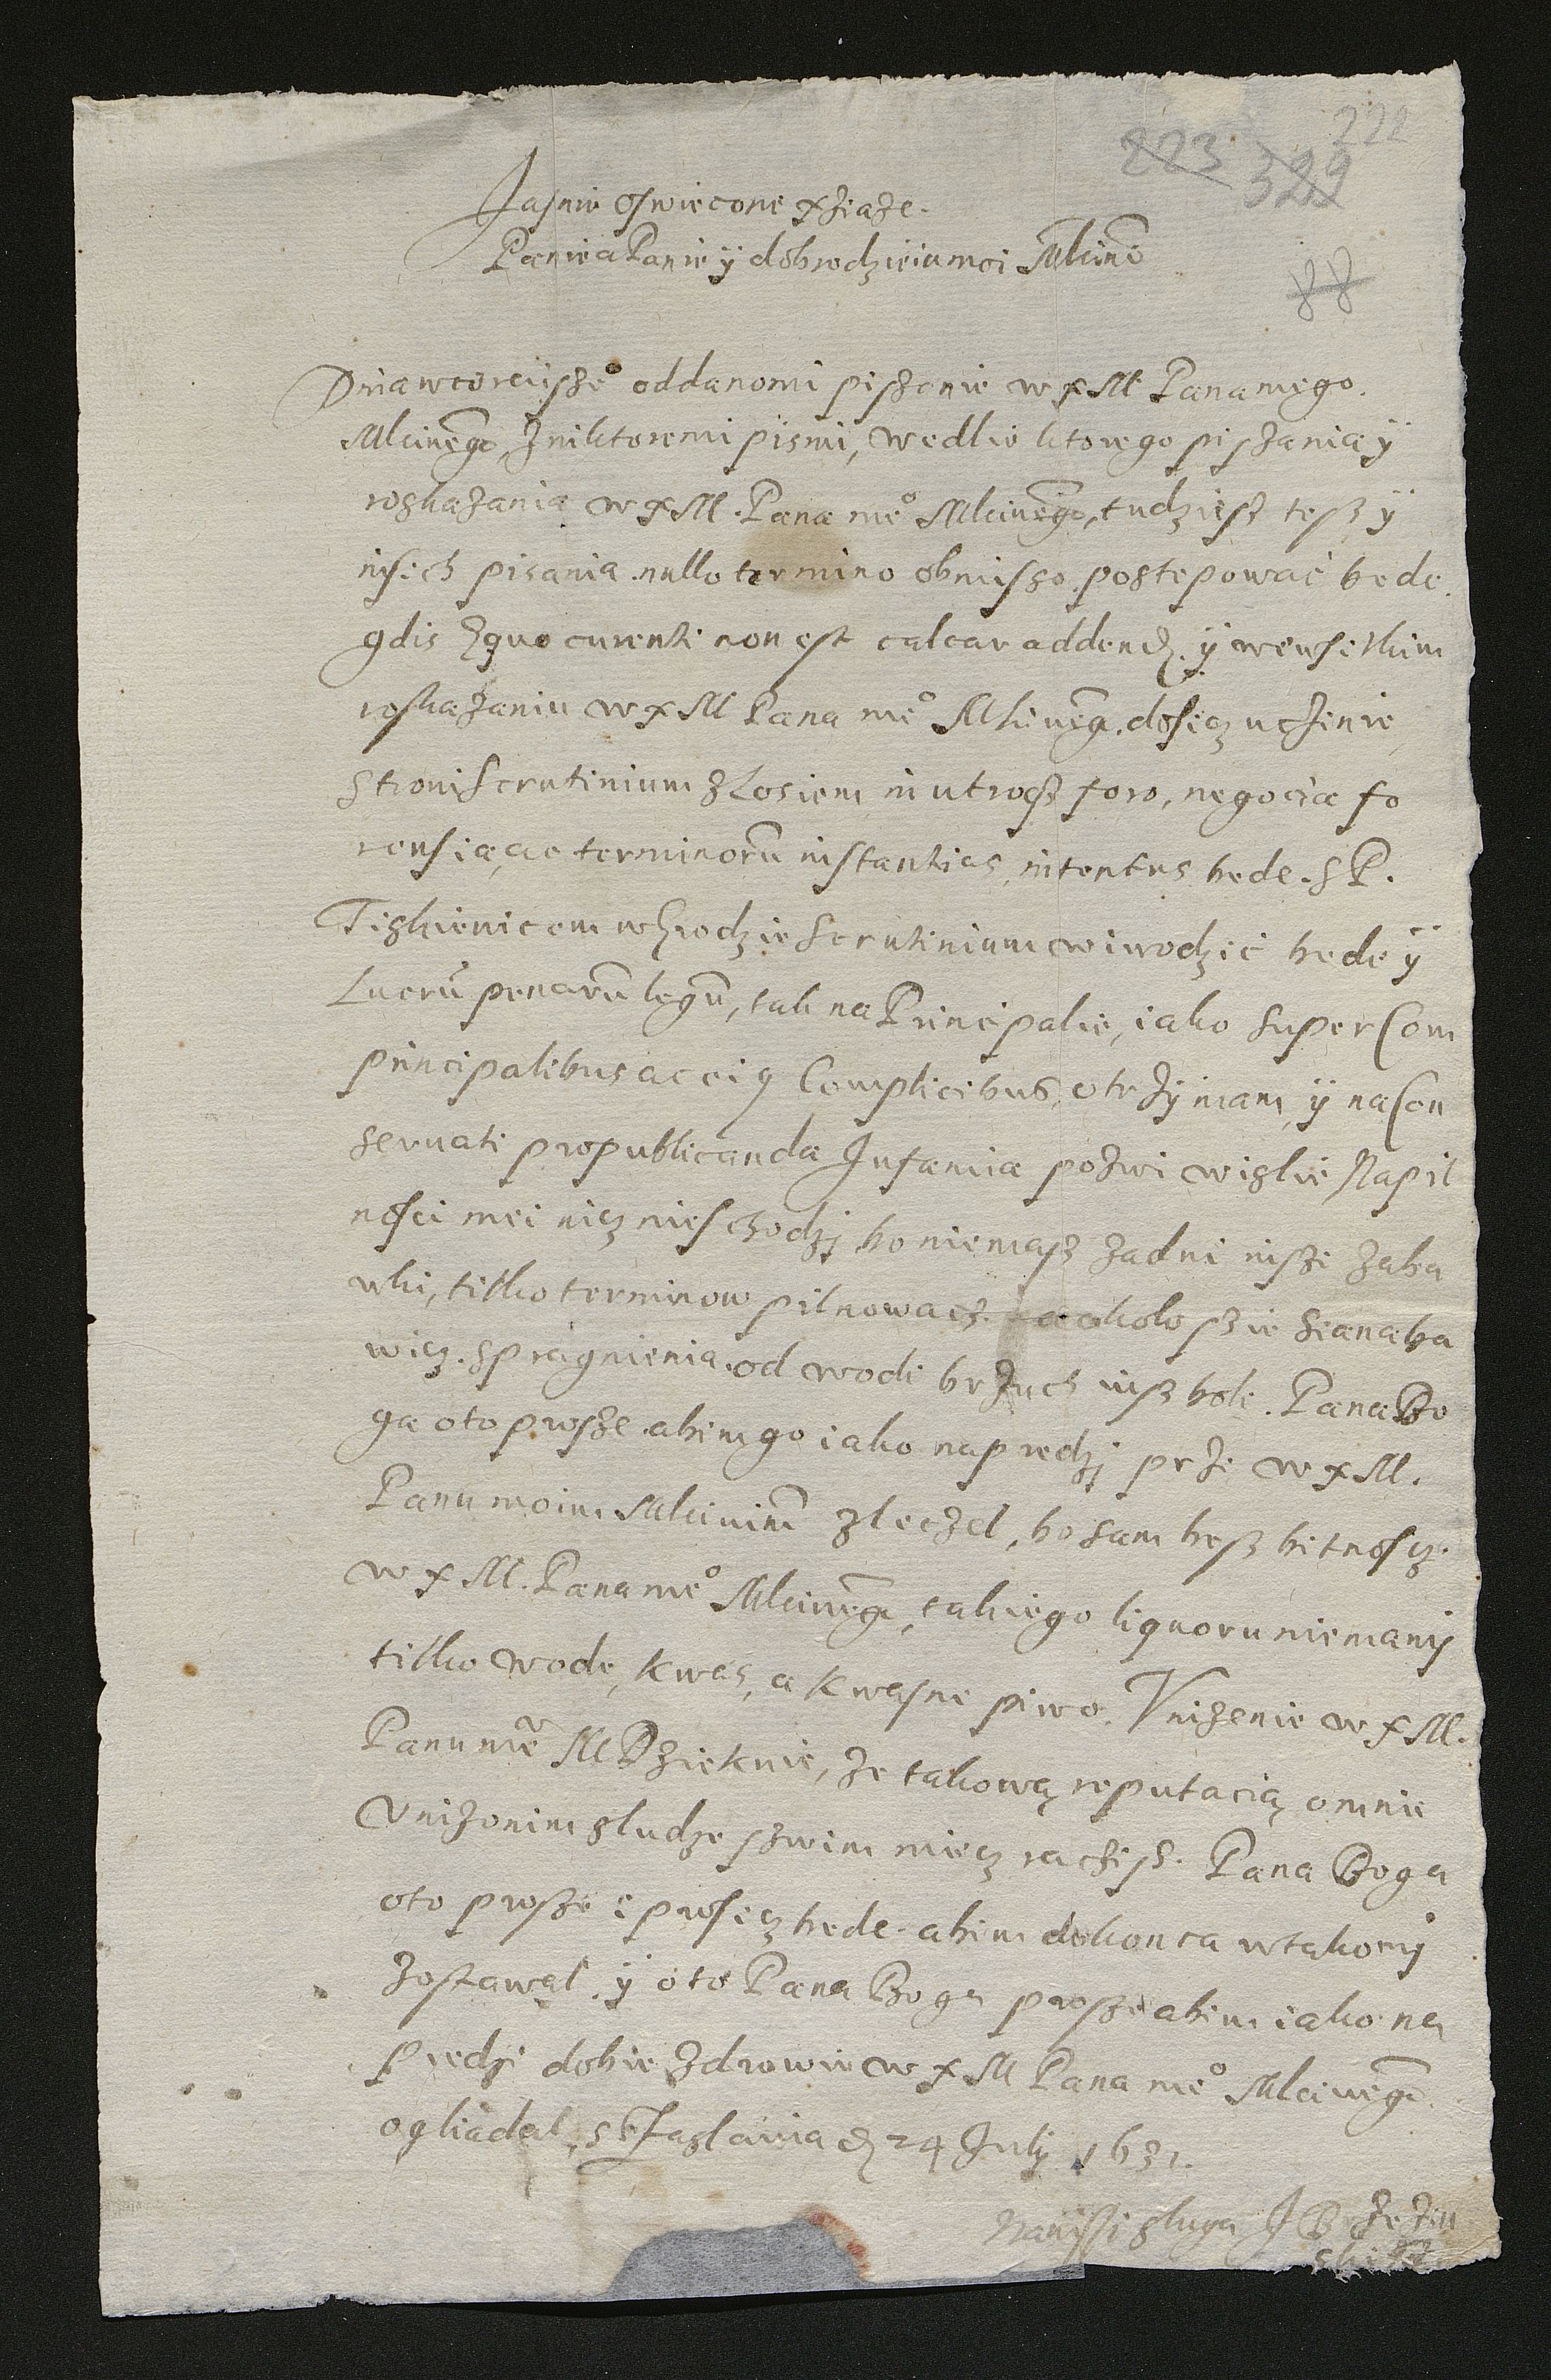 222
223 329
Jasnie oswiecone xżiąże.
Panie a Panie ÿ dobrodzieiu moi Mlciwi
88
Dnia wcoreiisze° oddano mi piszanie w x M Pana mego
Mlciwego, z niktoremi pismi, wedlie ktorego piszania ÿ
roskazania w x M. Pana me° Mlciwego, tudziesz tesz ÿ
inszich pisania nullo termino obmisso postepowac bede
gdis Equo curenti non est calcar addend. ÿ we wsitkim
roskazaniu w x M Pana me° Mlciweg. dosicz uczinie
Stroni Scrutinium z Losiem in utroqz foro, negocia fo
rensia, ac terminorū instantias intentus bede. S P.
Tiskiewicem w hrodzie Scrutinium wiwodzic bede ÿ
Lucrū penarū legū, tak na Principalie, iako super Com
principalibus ac eiq Complicibus, otrzÿmam ÿ na Con
servati pro publicanda Infamia pozwi wislie Na pil
nosci mei nicz nie schodzj bo niemasz zadni inszi zaba
wki, tilko terminow pilnowacz a okolo szie siana ba
wicz. S pragnienia od wodi brzuch insz boli. Pana Bo
ga oto prosze abim go iako napredzj prżi w x M.
Panu moim Mlciwim zleczel, bo sam besz bitnoscz.
w x M. Pana me° Mlciweg, takiego liquoru nie mamj
tilko wode, kwas, a kwasne piwo. Vnizenie w x M.
Panu me M Dziekuie, że takową reputacią o mnie
Vnizonim sludze szwim miecz raczisz. Pana Boga
oto prosze i prosicz bede abim do konca w takowj
zostawal. ÿ oto Pana Boga prosze abim iako na
predzi dobie zdrowie w x M Pana me° Mlciweg
ogliadal, s Zaslawia d 24 Julj 1631.
Naniszi sluga J Brzezin
ski